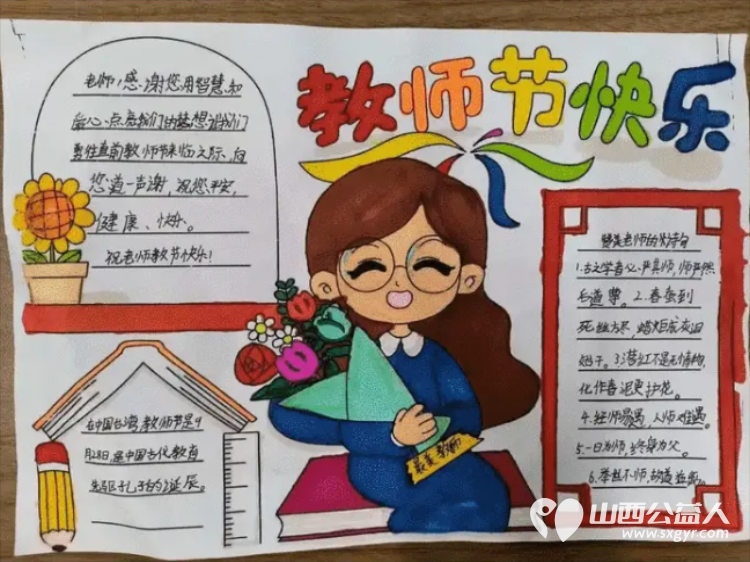 教师节快乐
老师,感谢您用智慧和
爱心、点亮我们的梦想让我们
勇往直前教师节来临之际、向
您道一声谢,祝您平安,
健康、快乐。
祝老师教节快乐!
在中国台湾,教师节是9
月28日是中国古代教育
先驱孔子的诞辰。
最美教师
赞美老师的好诗句
1.古之学者必严其师,师严然
后道尊。2.春蚕到
死丝方尽,蜡炬成灰泪
始干。3.落红不是无情物,
化作春泥更护花。
4.经师易遇,人师难遇。
5.一日为师,终身为父。
6.举世不师,故道益离。
山西公益人
www.sxgyr.com